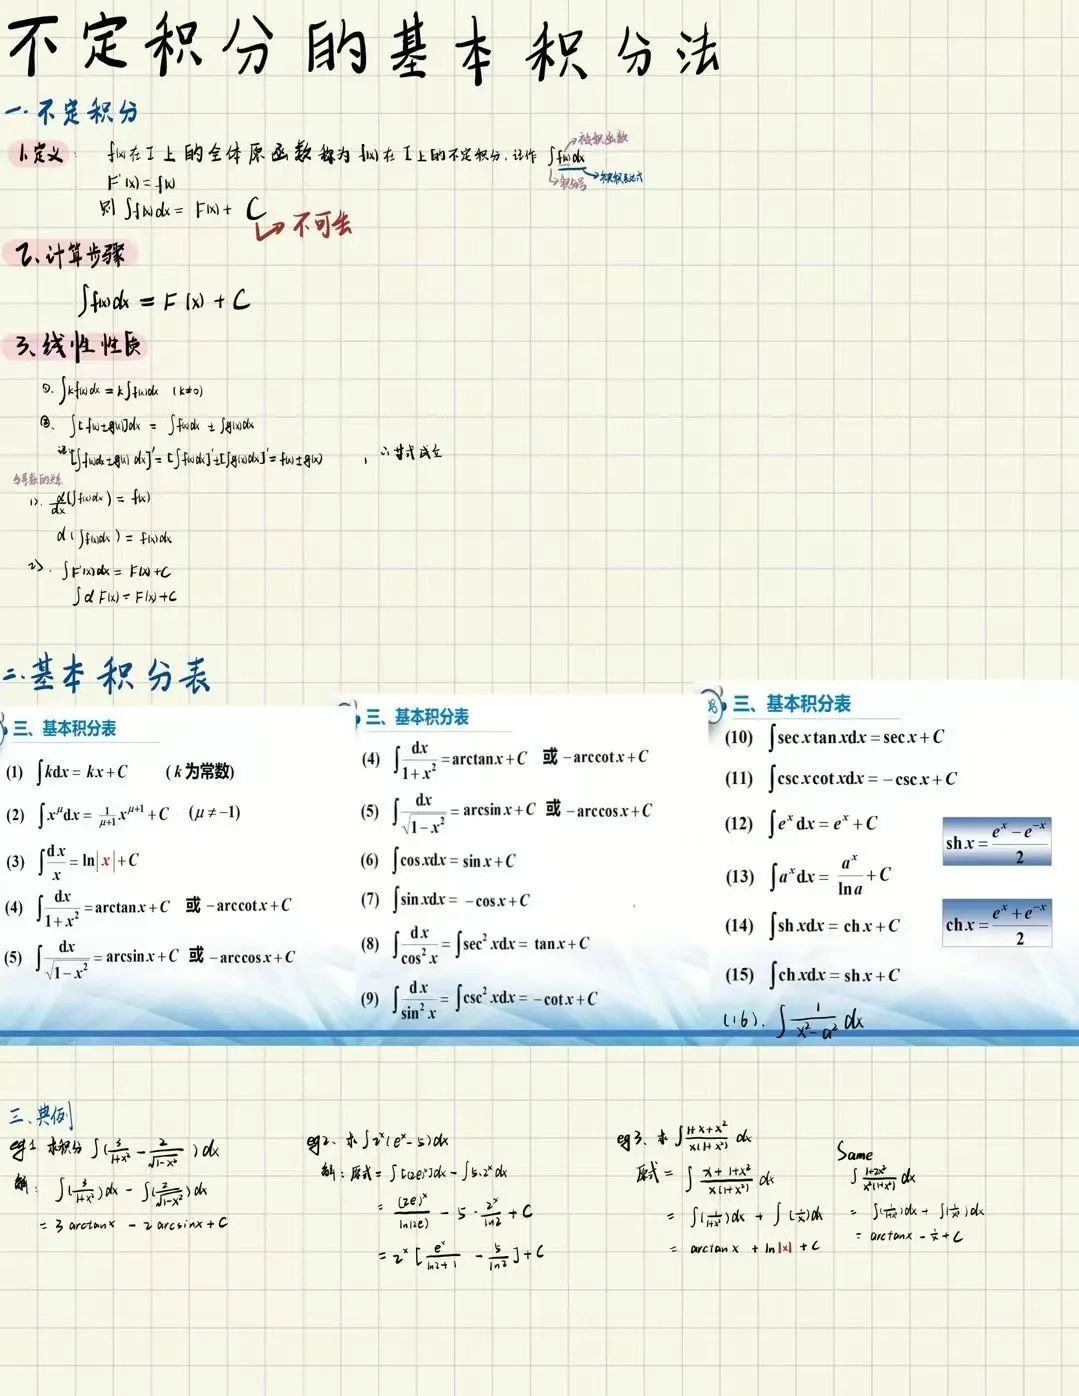 不定积分的基本积分法
一.不定积分
1.定义: f(x)在I上的全体原函数称为f(x)在I上的不定积分,记作 ∫f(x)dx
被积函数
积分号
被积表达式
F'(x)=f(x)
则∫f(x)dx = F(x)+ C
不可丢
2、计算步骤
∫f(x)dx = F(x)+C
3、线性性质
①. ∫kf(x)dx = k∫f(x)dx (k≠0)
②. ∫[f(x)±g(x)]dx = ∫f(x)dx ± ∫g(x)dx
证: [∫f(x)dx±g(x) dx]' = [∫f(x)dx]'±[∫g(x)dx]' = f(x)±g(x) , ∴等式成立
与导数的关系
1>. d/dx(∫f(x)dx) = f(x)
d(∫f(x)dx) = f(x)dx
2>. ∫F'(x)dx = F(x)+C
∫dF(x) = F(x)+C
二.基本积分表
三、基本积分表
(1) ∫kdx = kx+C (k为常数)
(2) ∫x^μ dx = 1/(μ+1) x^(μ+1) + C (μ≠-1)
(3) ∫dx/x = ln|x|+C
(4) ∫dx/(1+x²) = arctanx+C 或 -arccotx+C
(5) ∫dx/√(1-x²) = arcsinx+C 或 -arccosx+C
三、基本积分表
(4) ∫dx/(1+x²) = arctanx+C 或 -arccotx+C
(5) ∫dx/√(1-x²) = arcsinx+C 或 -arccosx+C
(6) ∫cosxdx = sinx+C
(7) ∫sinxdx = -cosx+C
(8) ∫dx/cos²x = ∫sec²xdx = tanx+C
(9) ∫dx/sin²x = ∫csc²xdx = -cotx+C
三、基本积分表
(10) ∫secxtanxdx = secx+C
(11) ∫cscxcotxdx = -cscx+C
(12) ∫e^x dx = e^x+C
(13) ∫a^x dx = a^x/lna + C
(14) ∫shxdx = chx+C
(15) ∫chxdx = shx+C
shx = (e^x - e^-x)/2
chx = (e^x + e^-x)/2
(16). ∫ 1/(x²-a²) dx
三、典例
eg1. 求积分 ∫(3/(1+x²) - 2/√(1-x²))dx
解: ∫(3/(1+x²))dx - ∫(2/√(1-x²))dx
= 3arctanx - 2arcsinx+C
eg2、求∫2^x(e^x-5)dx
解:原式 = ∫(2e)^x dx - ∫5·2^x dx
= (2e)^x/ln(2e) - 5·2^x/ln2 + C
= 2^x[e^x/(ln2+1) - 5/ln2]+C
eg3、求∫(1+x+x²)/(x(1+x²)) dx
原式 = ∫(x+1+x²)/(x(1+x²)) dx
= ∫(1/(1+x²))dx + ∫(1/x)dx
= arctanx + ln|x| + C
Same
∫(1+2x²)/(x²(1+x²)) dx
= ∫(1/(1+x²))dx + ∫(1/x²)dx
= arctanx - 1/x + C